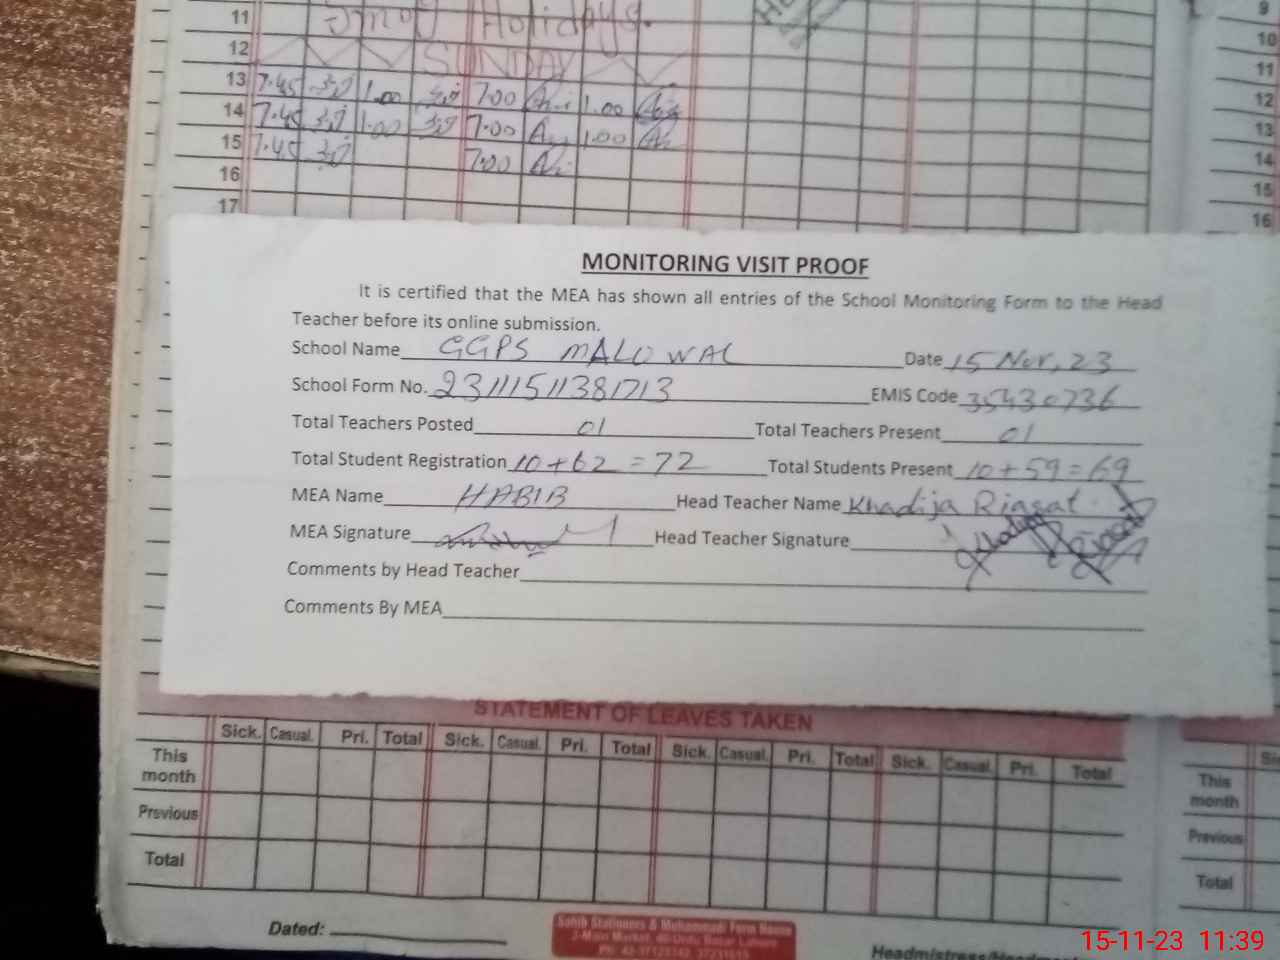 11 Smog Holidays.
12 SUNDAY
13 7.45 1.00 7.00 1.00
14 7.45 1.00 7.00 1.00
15 7.45 7.00
16
17
9
10
11
12
13
14
15
16
MONITORING VISIT PROOF
It is certified that the MEA has shown all entries of the School Monitoring Form to the Head
Teacher before its online submission.
School Name GGPS MALOWAL Date 15 Nov, 23
School Form No. 23111511381713 EMIS Code 35430736
Total Teachers Posted 01 Total Teachers Present 01
Total Student Registration 10+62=72 Total Students Present 10+59=69
MEA Name HABIB Head Teacher Name Khadija Riasat
MEA Signature Head Teacher Signature
Comments by Head Teacher
Comments By MEA
STATEMENT OF LEAVES TAKEN
Sick. Casual. Pri. Total Sick. Casual. Pri. Total Sick. Casual. Pri. Total Sick. Casual. Pri. Total
This month
Previous
Total
This month
Previous
Total
Dated:
Sahib Stationers & Muhammadi Form House
2-Main Market, 40-Urdu Bazar Lahore
15-11-23 11:39